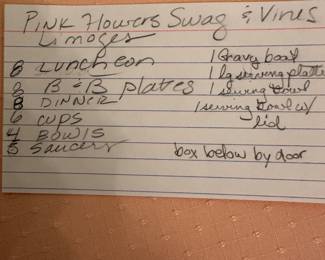 Pink Flowers Swag & Vines
Limoges
8 Luncheon
8 B & B plates
8 DINNER
6 CUPS
4 BOWLS
5 Saucers
1 Gravy boat
1 lg serving platter
1 serving bowl
1 serving bowl w/
lid
box below by door